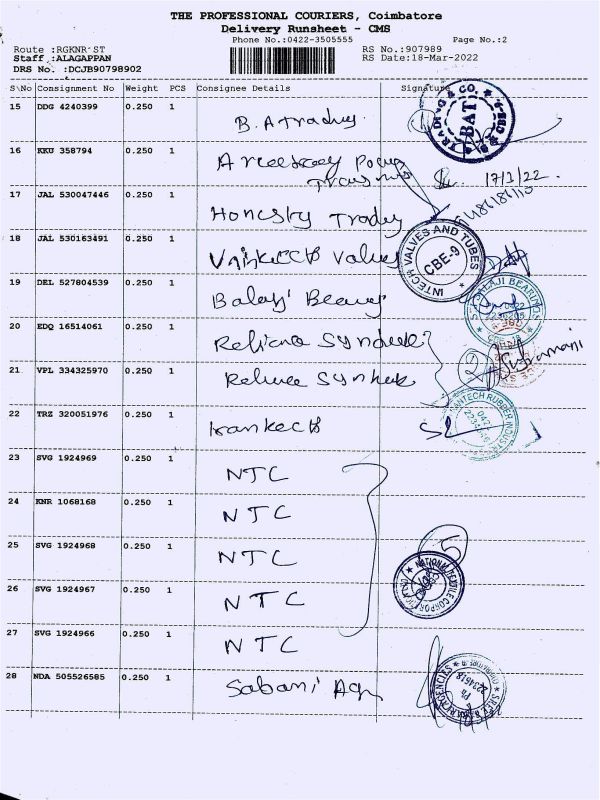 THE PROFESSIONAL COURIERS, Coimbatore
Delivery Runsheet - CMS
Phone No.:0422-3505555 Page No.:2
Route :RGKNR ST RS No.:907989
Staff :ALAGAPPAN RS Date:18-Mar-2022
DRS No. :DCJB90798902
S\No Consignment No Weight PCS Consignee Details Signature
15 DDG 4240399 0.250 1 B.A Trading
16 KKU 358794 0.250 1
17/3/22
17 JAL 530047446 0.250 1 Honesty Trading
18 JAL 530163491 0.250 1 Valves
INTECH VALVES AND TUBES
CBE-9
19 DEL 527804539 0.250 1 Balaji Bearing
BALAJI BEARINGS
20 EDQ 16514061 0.250 1 Reliance Syndicate
21 VPL 334325970 0.250 1 Reliance
2
22 TRZ 320051976 0.250 1
RUBBER
23 SVG 1924969 0.250 1 NTC
24 KNR 1068168 0.250 1 NTC
25 SVG 1924968 0.250 1 NTC
5
26 SVG 1924967 0.250 1 NTC
NATIONAL TEXTILE CORPORATION
27 SVG 1924966 0.250 1 NTC
28 NDA 505526585 0.250 1 Sabani Agn
AGENCIES
2234618